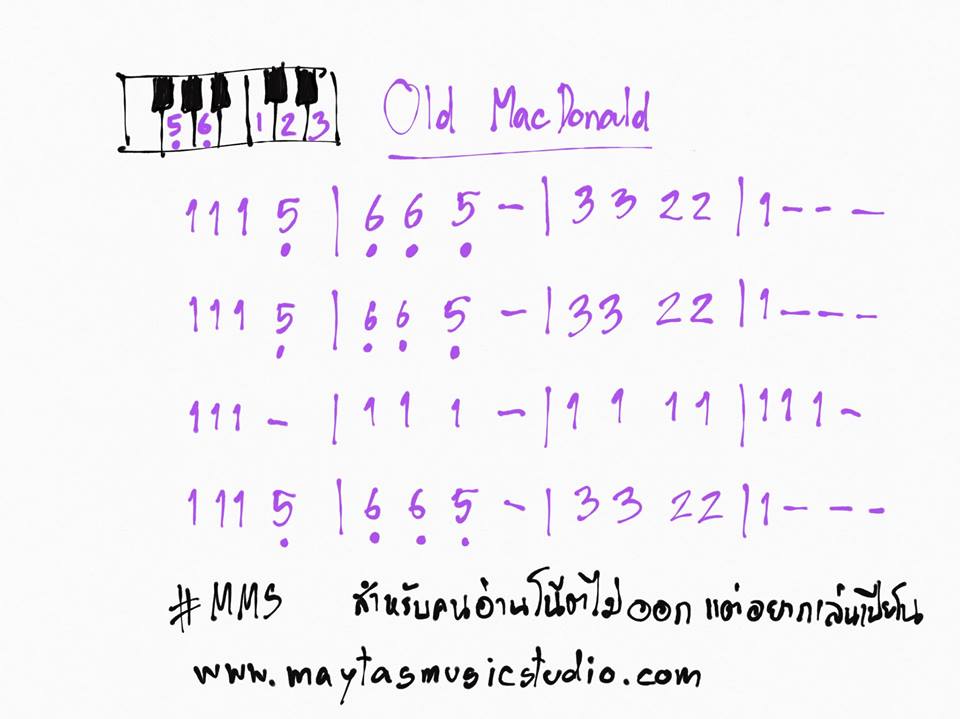 5̣ 6̣ 1 2 3 Old MacDonald
1 1 1 5̣ | 6̣ 6̣ 5̣ - | 3 3 2 2 | 1 - - -
1 1 1 5̣ | 6̣ 6̣ 5̣ - | 3 3 2 2 | 1 - - -
1 1 1 - | 1 1 1 - | 1 1 1 1 | 1 1 1 -
1 1 1 5̣ | 6̣ 6̣ 5̣ - | 3 3 2 2 | 1 - - -
#MMS สำหรับคนอ่านโน๊ตไม่ออก แต่อยากเล่นเปียโน
www.maytasmusicstudio.com